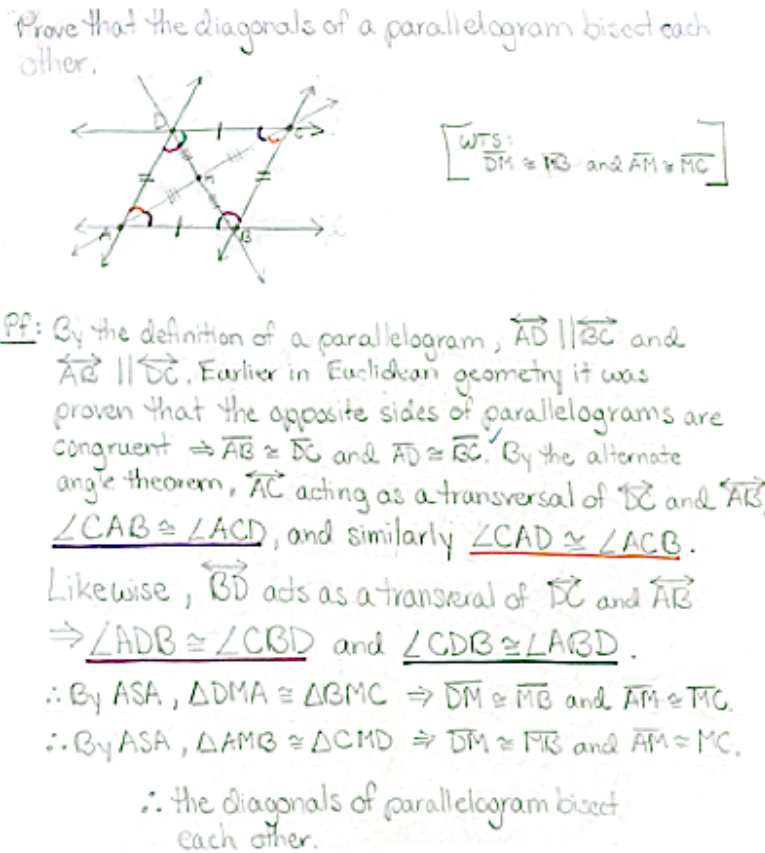 Prove that the diagonals of a parallelogram bisect each
other.
D
C
M
A
B
[WTS:
DM ≅ MB and AM ≅ MC]
Pf: By the definition of a parallelogram, AD || BC and
AB || DC. Earlier in Euclidean geometry it was
proven that the opposite sides of parallelograms are
congruent ⇒ AB ≅ DC and AD ≅ BC. By the alternate
angle theorem, AC acting as a transversal of DC and AB,
∠CAB ≅ ∠ACD, and similarly ∠CAD ≅ ∠ACB.
Likewise, BD acts as a transveral of DC and AB
⇒ ∠ADB ≅ ∠CBD and ∠CDB ≅ ∠ABD.
∴ By ASA, ΔDMA ≅ ΔBMC ⇒ DM ≅ MB and AM ≅ MC.
∴ By ASA, ΔAMB ≅ ΔCMD ⇒ DM ≅ MB and AM ≅ MC.
∴ the diagonals of parallelogram bisect
each other.